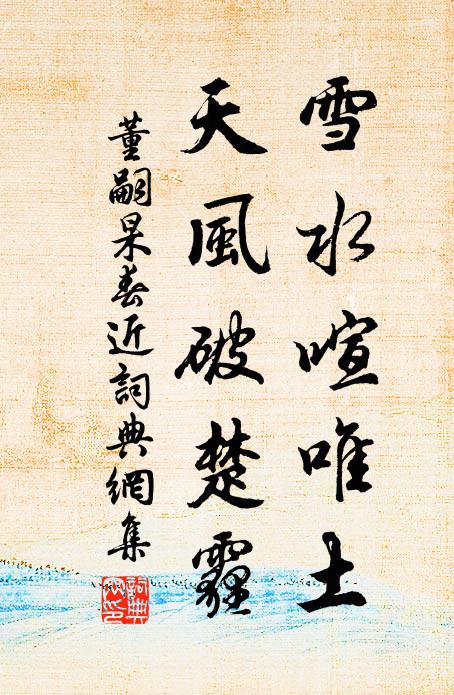 雪水喧唯土
天風破楚霾
董嗣杲春近詞典網集